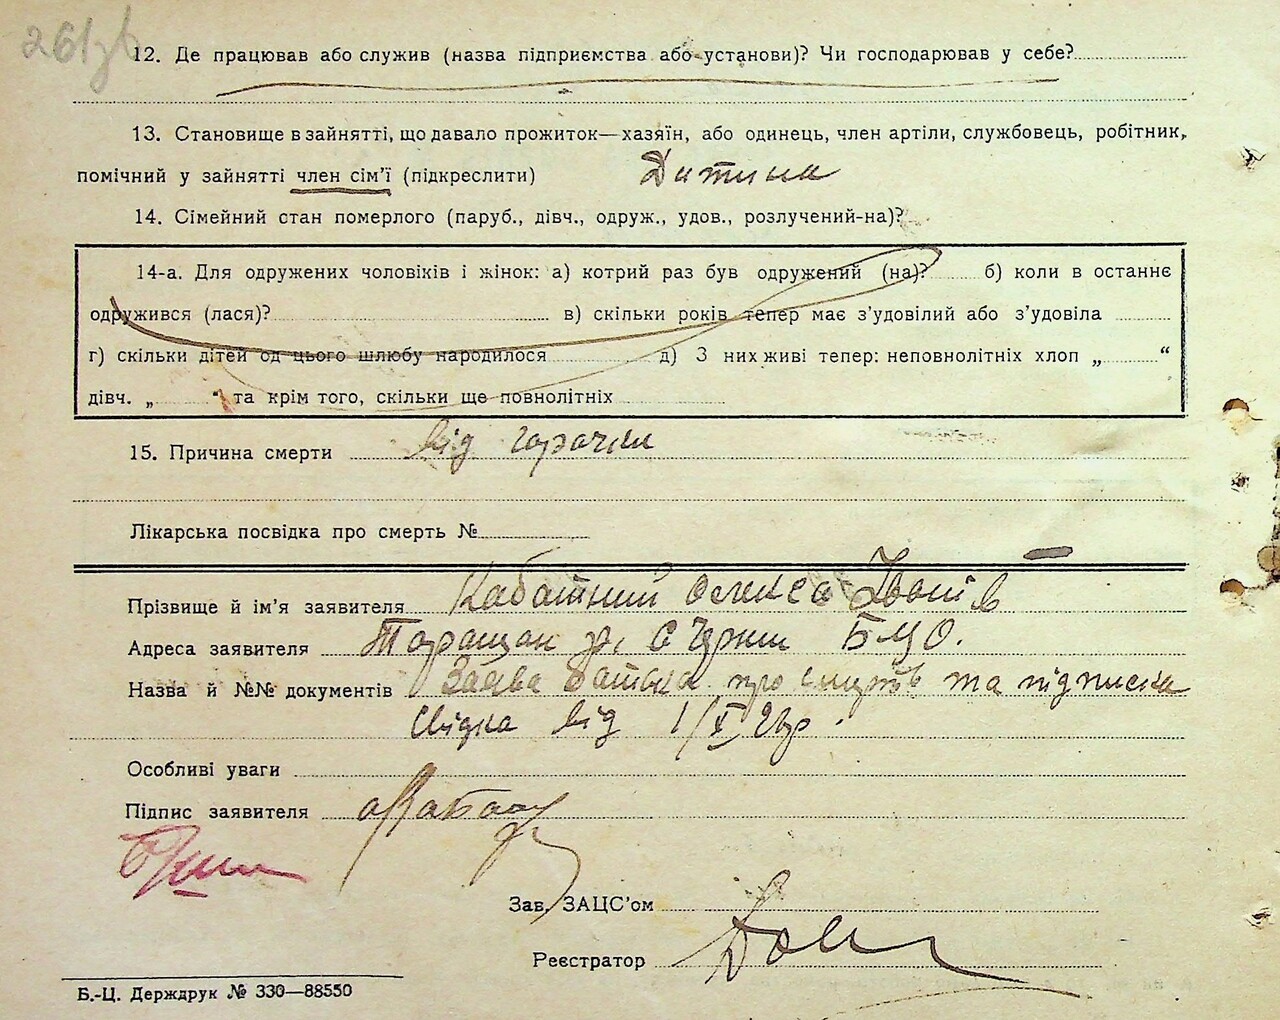 12. Де працював або служив (назва підприємства або установи)? Чи господарював у себе?
13. Становище в зайнятті, що давало прожиток—хазяїн, або одинець, член артіли, службовець, робітник,
помічний у зайнятті член сім'ї (підкреслити) Дитина
14. Сімейний стан померлого (паруб., дівч., одруж., удов., розлучений-на)?
14-а. Для одружених чоловіків і жінок: а) котрий раз був одружений (на)? б) коли в останнє
одружився (лася)? в) скільки років тепер має з'удовілий або з'удовіла
г) скільки дітей од цього шлюбу народилося д) З них живі тепер: неповнолітніх хлоп „ “
дівч. „ “ та крім того, скільки ще повнолітніх
15. Причина смерти від горячки
Лікарська посвідка про смерть №
Прізвище й ім'я заявителя Кабатний Олекса Іванів
Адреса заявителя Таращан р. с
Назва й №№ документів Заява батька про смерть та підписка
свідка від 1/X
Особливі уваги
Підпис заявителя
Зав. ЗАЦС'ом
Реєстратор
Б.-Ц. Держдрук № 330—88550